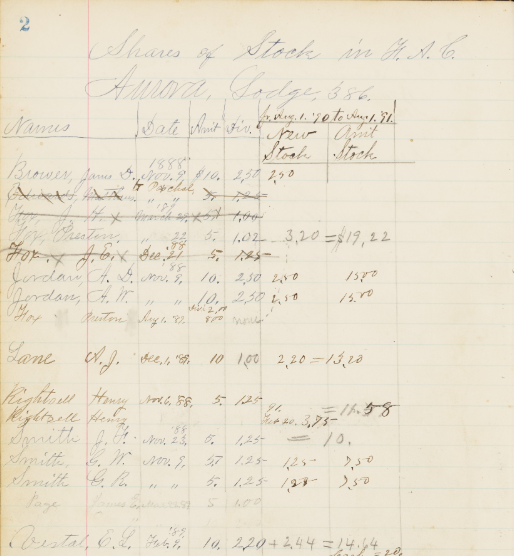 2
Shares of Stock in F. A. C.
Aurora, Lodge, 386.
fr Aug. 1. '90 to Aug. 1. '91.
Names Date Amt Div. New Stock Amt Stock
1888
Brower, James D. Nov. 9, $10. 2,50 2,50
to Paschal
" " 5. 1.25
Fox, J. H. March 1.00
Fox, Preston, " 22 5. 1.02 3,20 = $19,22
Fox. J. E. Dec. 21 '88 5. 1.25
Jordan, A. D. Nov. 9, '88 10. 2,50 2,50 15.00
Jordan, A. W. " " 10. 2.50 2,50 15.00
Fox Aug. none
Lane A. J. Dec. 1, '88. 10 1,00 2,20 = 13,20
Kightsell Henry Nov. 6, 88, 5. 1.25 = 12.58
Kightsell Henry 91. Feb 20. 3,75
Smith J. H. Nov. 23, '88 1,25 = 10.
Smith, G. W. Nov. 9. 5. 1.25 1,25 7,50
Smith G. R. " " 5. 1.25 1,25 7,50
Page James 5 1.00
Vestal, E. L. Feb. 9. '89 10. 2,20 + 2.44 = 14.64